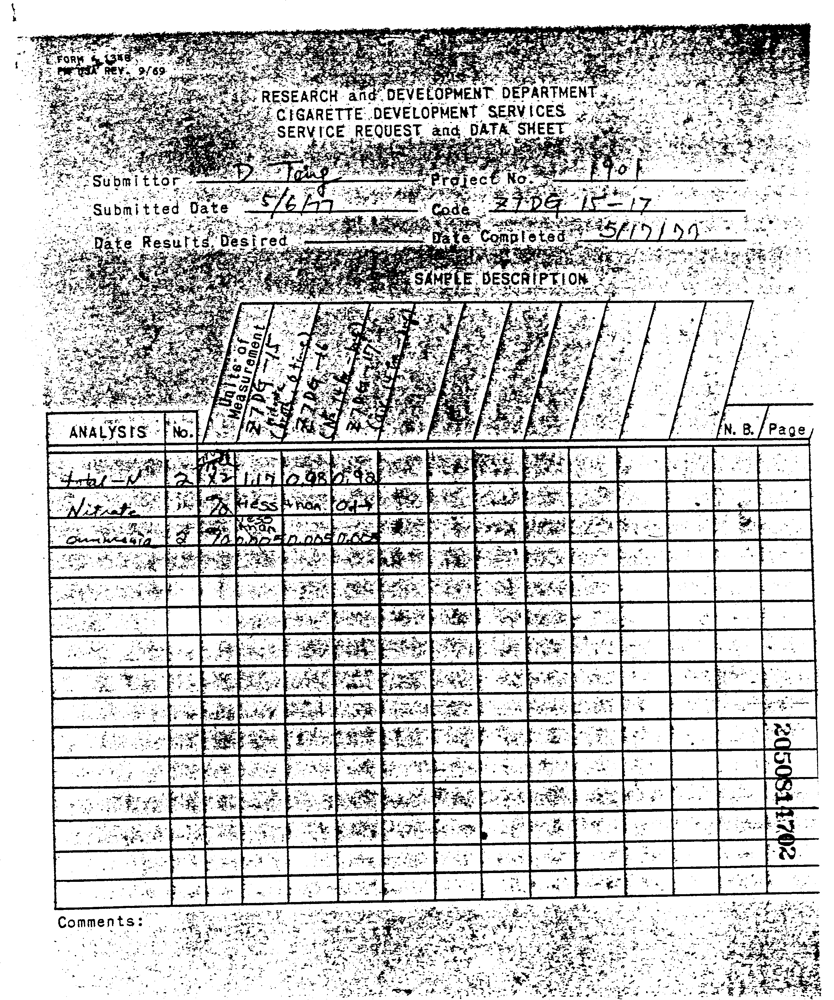 FORM
PM USA REV. 9/69
RESEARCH and DEVELOPMENT DEPARTMENT
CIGARETTE DEVELOPMENT SERVICES
SERVICE REQUEST and DATA SHEET
Submittor D Teng Project No. 1901
Submitted Date 5/6/77 Code Z7DG 15-17
Date Results Desired Date Completed 5/17/77
SAMPLE DESCRIPTION
Units of Measurement
Z7DG-15
Z7DG-16
Z7DG-17
ANALYSIS No. N. B. Page
total-N 2 1.17 0.98 0.98
Nitrate % less than 0.1
ammonia 2 % 0.005 0.005 0.005
2050811702
Comments: